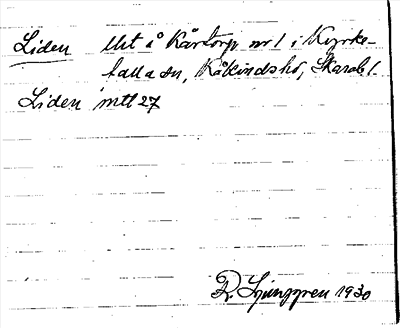 Liden Utt å Kårtorp nr 1 i Kyrke-
falla sn, Kåkinds hd, Skarab. l.
Liden mtl 27
R. Ljunggren 1930